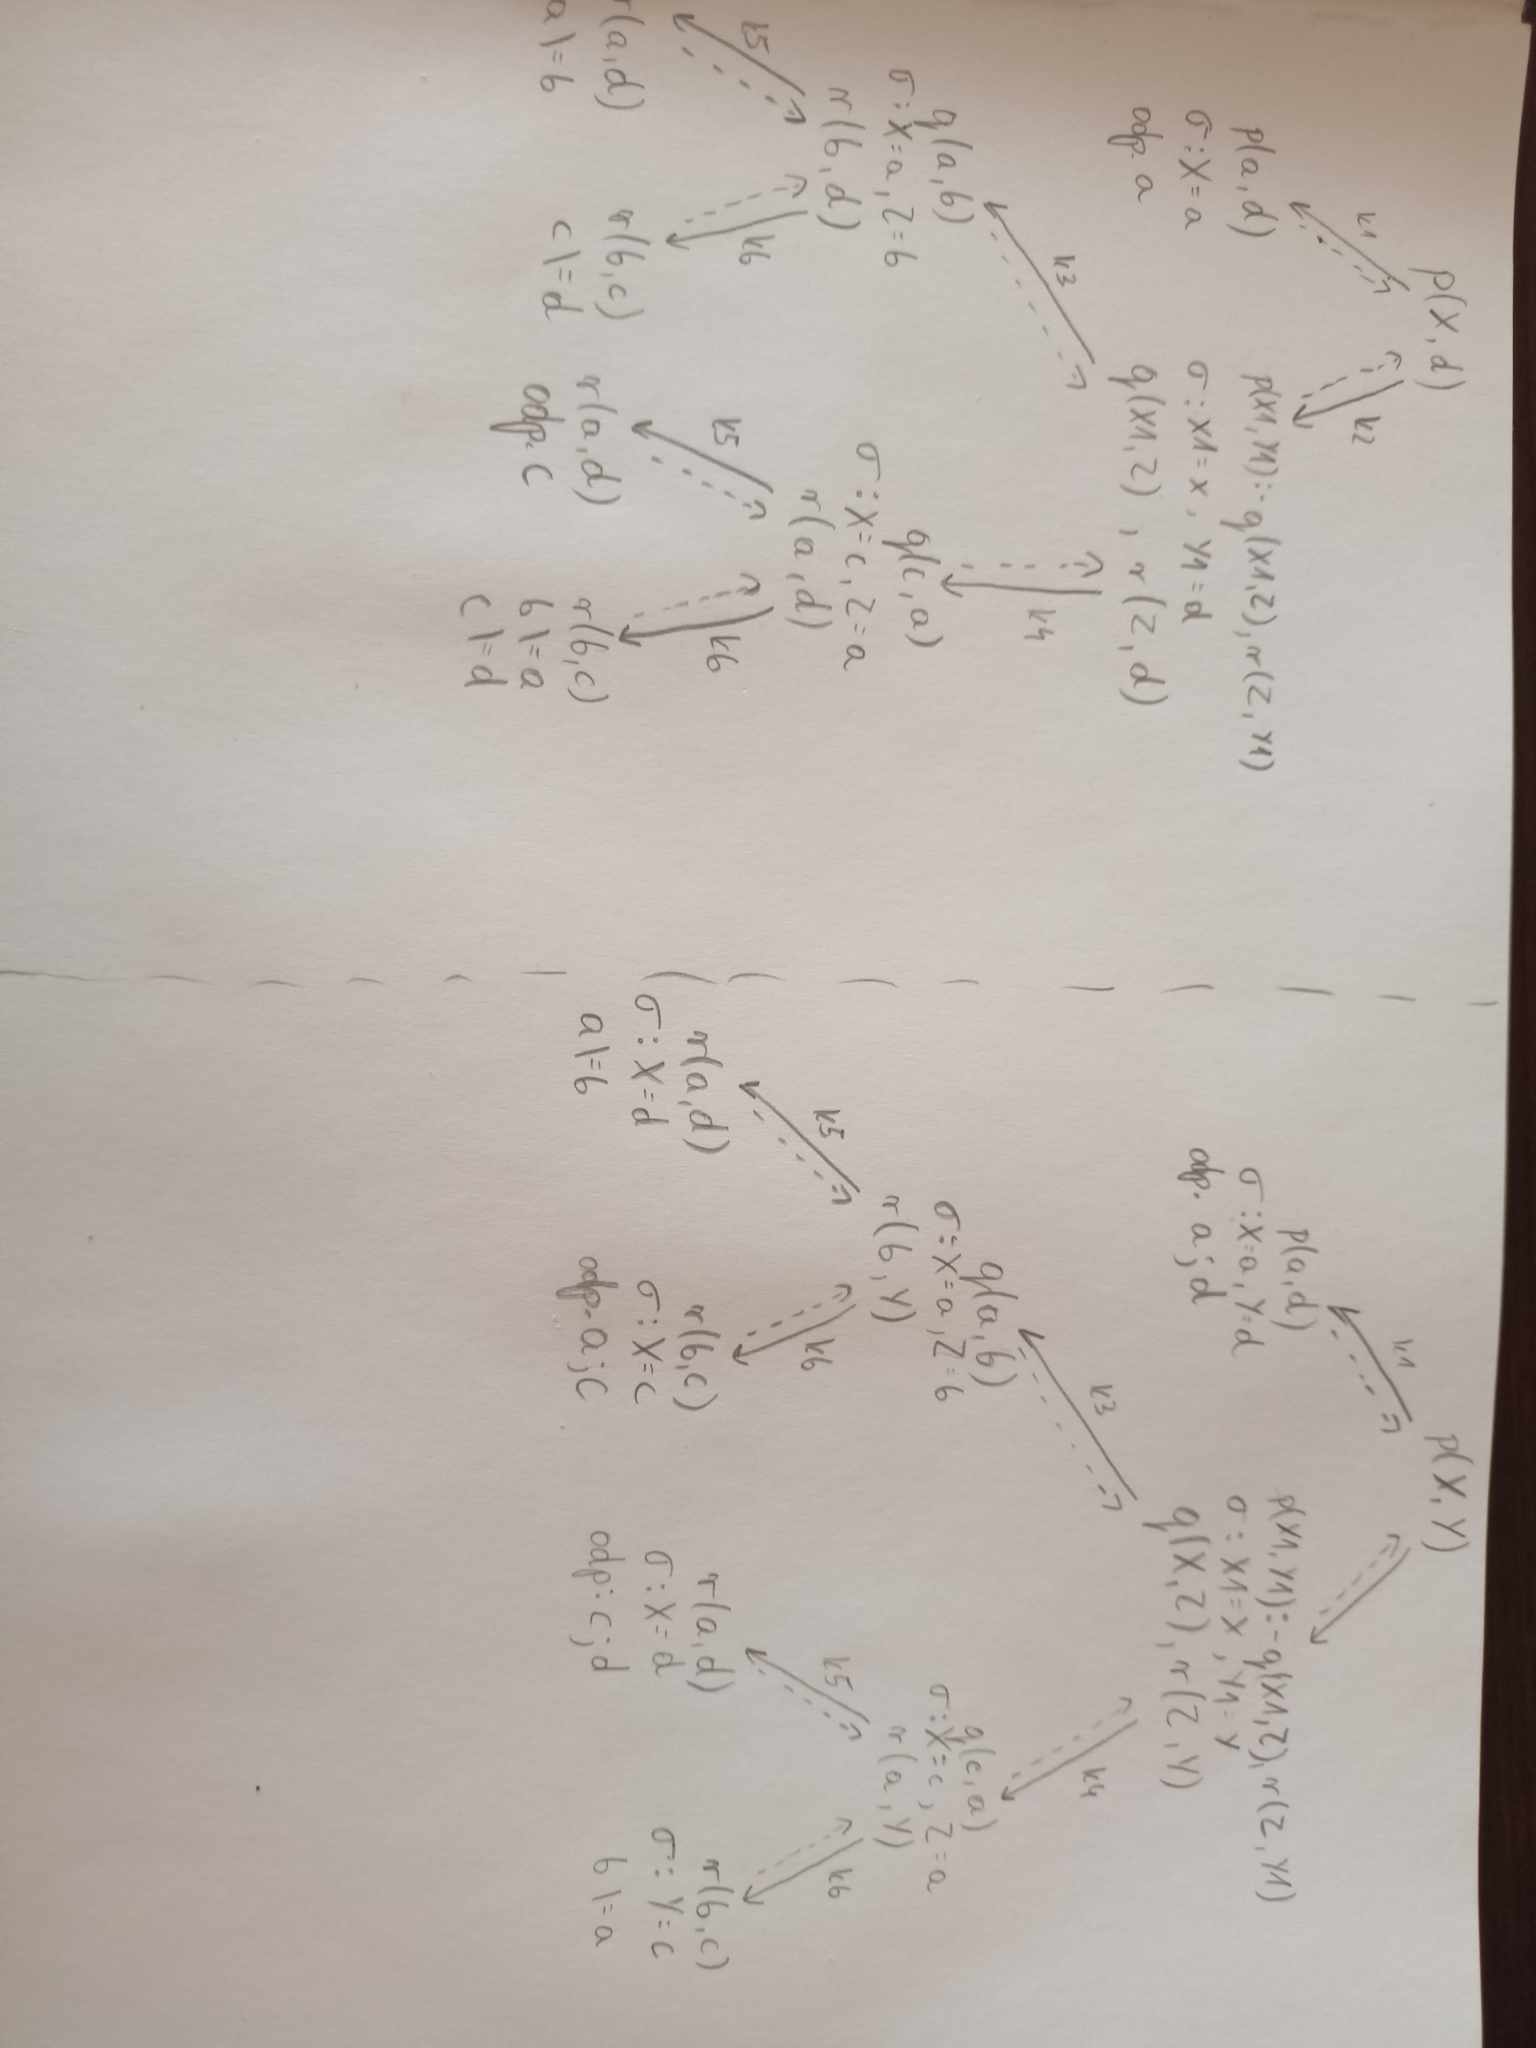 p(X, d)
k1
k2
p(a, d)
σ: X = a
odp. a
p(X1, Y1) :- q(X1, Z), r(Z, Y1)
σ: X1 = X, Y1 = d
q(X1, Z), r(Z, d)
k3
k4
q(a, b)
σ: X = a, Z = b
r(b, d)
q(c, a)
σ: X = c, Z = a
r(a, d)
k5
k6
k5
k6
r(a, d)
a \= b
r(b, c)
c \= d
r(a, d)
odp. c
r(b, c)
b \= a
c \= d
p(X, Y)
k1
p(a, d)
σ: X = a, Y = d
odp. a; d
p(X1, Y1) :- q(X1, Z), r(Z, Y1)
σ: X1 = X, Y1 = Y
q(X, Z), r(Z, Y)
k3
k4
q(a, b)
σ: X = a, Z = b
r(b, Y)
q(c, a)
σ: X = c, Z = a
r(a, Y)
k5
k6
k5
k6
r(a, d)
σ: X = d
a \= b
r(b, c)
σ: X = c
odp. a; c
r(a, d)
σ: X = d
odp: c; d
r(b, c)
σ: Y = c
b \= a